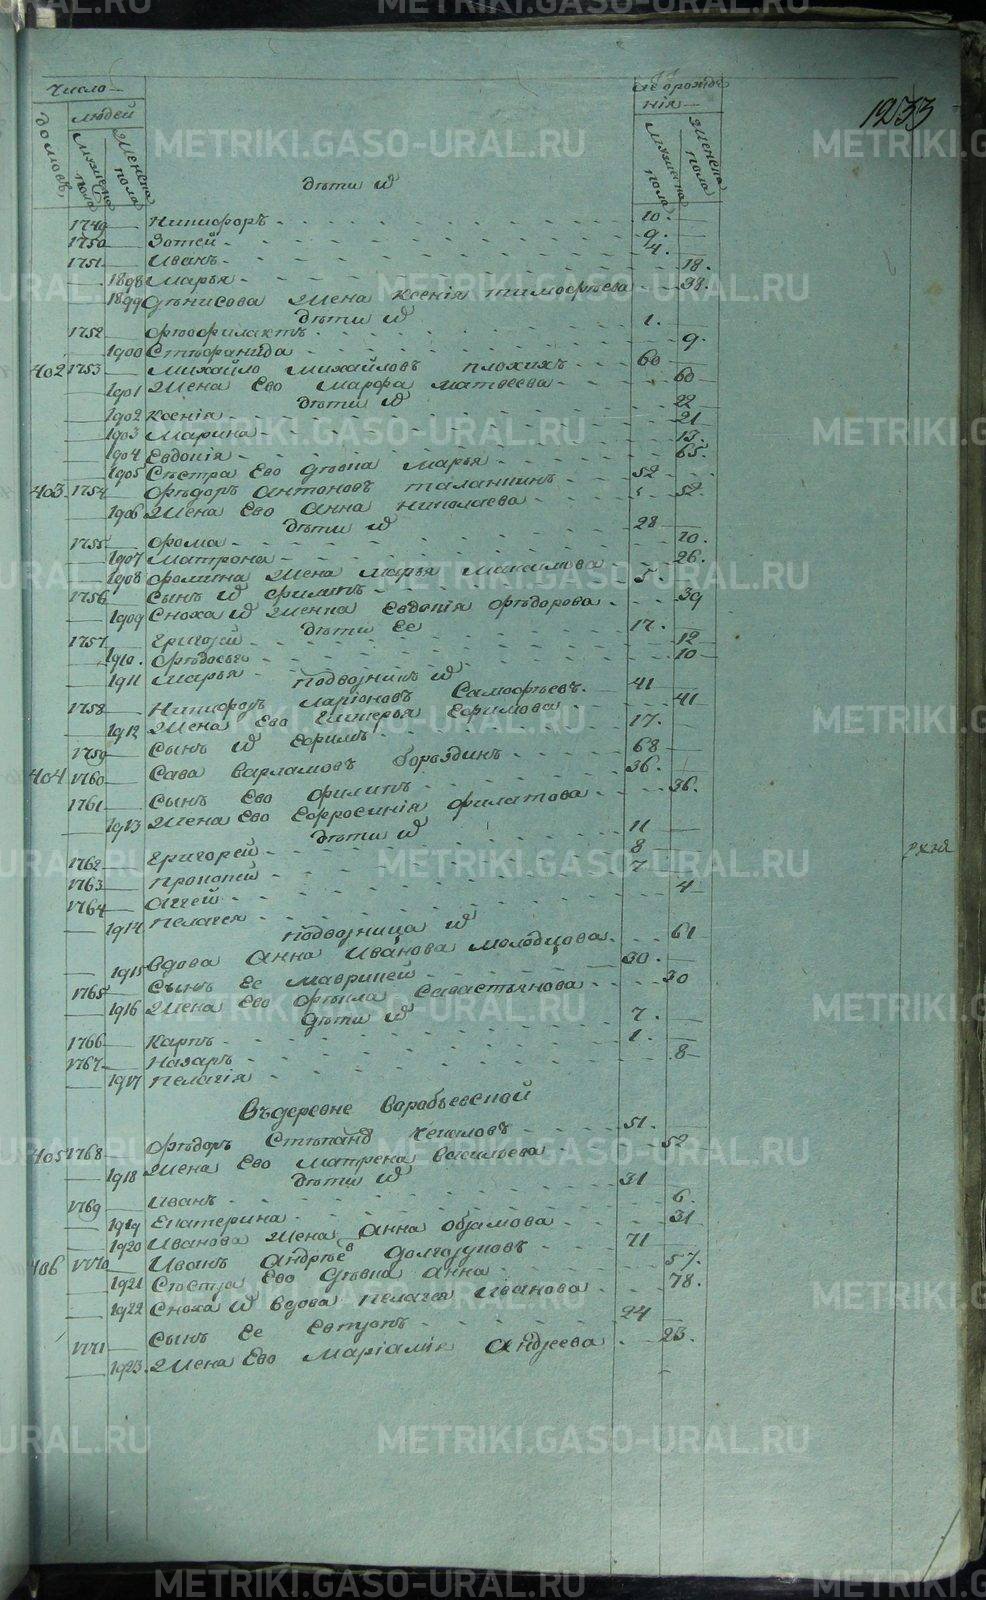 Число
людей
домовъ
мужеска пола
женска пола
от рожде
нія
мужеска пола
женска пола
1233
дѣти их
1749 Никифоръ 10.
1750 Зотей 9.
1751 Иванъ 4.
1898 Марья 18.
1899 Денисова жена Ксенія Тимофѣева 38.
дѣти их
1752 Феофилактъ 1.
1900 Стефанида 9.
402 1753 Михайло Михайловъ Плохихъ 60
1901 Жена Ево Марфа Матвеева 60
дѣти их
1902 Ксенія 22
1903 Марина 21
1904 Евдокія 13.
1905 Сѣстра Ево дѣвка Марья 65.
403. 1754 Фѣдоръ Антоновъ Таланкинъ 52
1906 Жена Ево Анна Николаева 52.
дѣти их
1755 Фома 28
1907 Матрона 20.
1908 Фомина жена Марья 26.
1756 Сынъ их Филипъ 5.
1909 Сноха их женка Евдокія Фѣдорова 39
дѣти Ее
1757 Григорей 17.
1910. Фѣдосья 12
1911 Марья 10
Подворникъ их
1758 Никифоръ Ларіоновъ 41
1912 Жена Ево Гликерья Ефимова 41
1759 Сынъ их Ефимъ 17.
404 1760 Сава Варламовъ 68
1761 Сынъ Ево Филипъ 36.
1913 Жена Ево Ефросинія Филатова 36.
дѣти их
1762 Григорей 11
1763 Прокопей 8
1764 Аггей 7
1914 Пелагея 4
Подворница их
1915 Вдова Анна Иванова Молодцова 61
1765 Сынъ Ее Маврикей 30.
1916 Жена Ево Фѣкла Савастьянова 30
дѣти их
1766 Карпъ 7.
1767 Назаръ 1.
1917 Пелагія 8
Въ деревне Варабьевской
405 1768 Фѣдоръ 51.
1918 Жена Ево Матрена Васильева 52
дѣти их
1769 Иванъ 31
1919 Екатерина 6.
1920 Иванова жена Анна 31
406 1770 Иванъ Андрѣев Долгоруковъ 71
1921 Сѣстра Ево дѣвка Анна 57.
1922 Сноха их вдова Пелагея Иванова 78.
1771 Сынъ Ее 24
1923. Жена Ево Маріамія Андреева 23.
METRIKI.GASO-URAL.RU